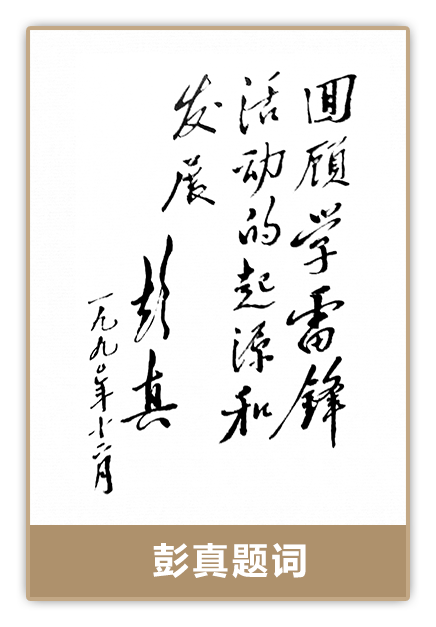 回顾学雷锋
活动的起源和
发展
彭真
一九九〇年十二月
彭真题词